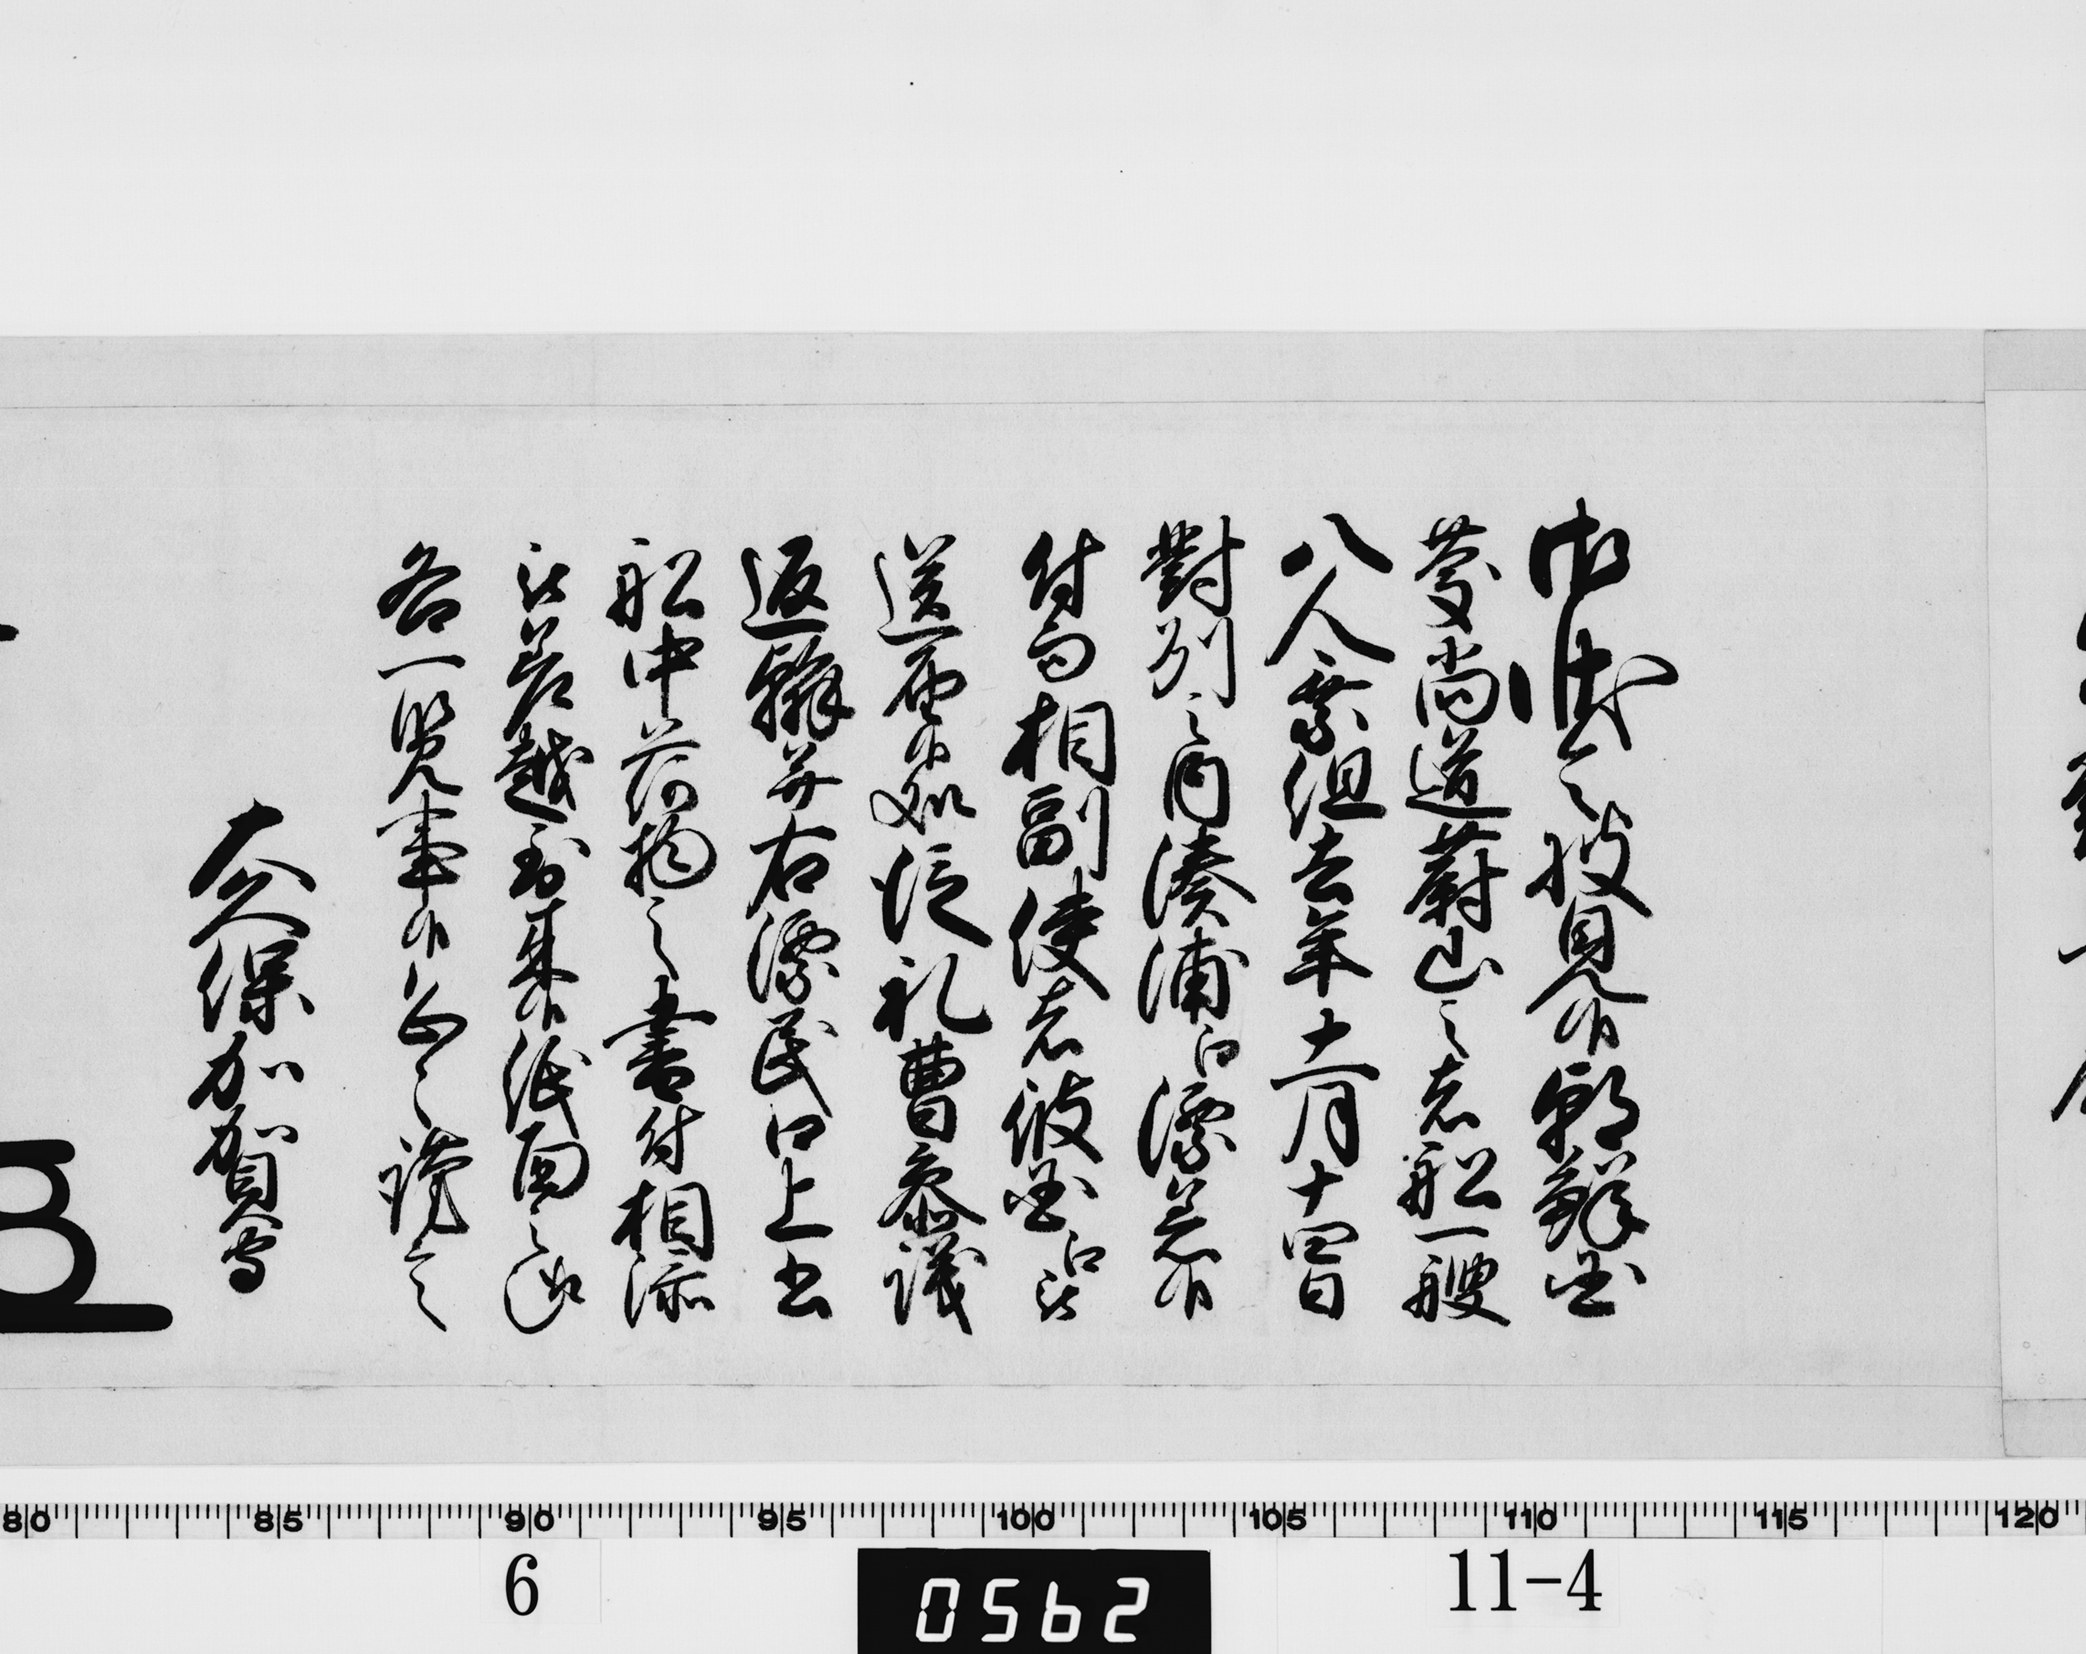 御状令披見候朝鮮国
慶尚道蔚山之者船一艘
八人乗組去年十一月十四日
對列之内湊浦江漂着候
付而相副使者彼国江
送届候処従礼曹参議
返翰并右漂民口上書
船中荷物之書付相添
被差越到来候紙面之趣
各一覧事候恐々謹言
大久保加賀守
80 85 90 95 100 105 110 115 120
6
0562
11-4